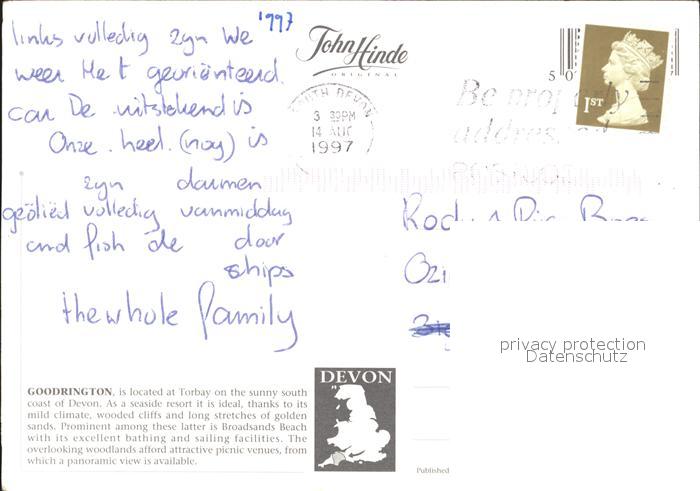 1997
links volledig zijn We
weer Het georiënteerd.
can De uitstekend is
Onze heel (nog) is
zijn daumen
geölied volledig vanmiddag
and fish de door
ships
the whole family
John Hinde
ORIGINAL
SOUTH DEVON
3 39PM
14 AUG
1997
Be properly
addressed
5 0
1ST
privacy protection
Datenschutz
GOODRINGTON, is located at Torbay on the sunny south
coast of Devon. As a seaside resort it is ideal, thanks to its
mild climate, wooded cliffs and long stretches of golden
sands. Prominent among these latter is Broadsands Beach
with its excellent bathing and sailing facilities. The
overlooking woodlands afford attractive picnic venues, from
which a panoramic view is available.
DEVON
Published